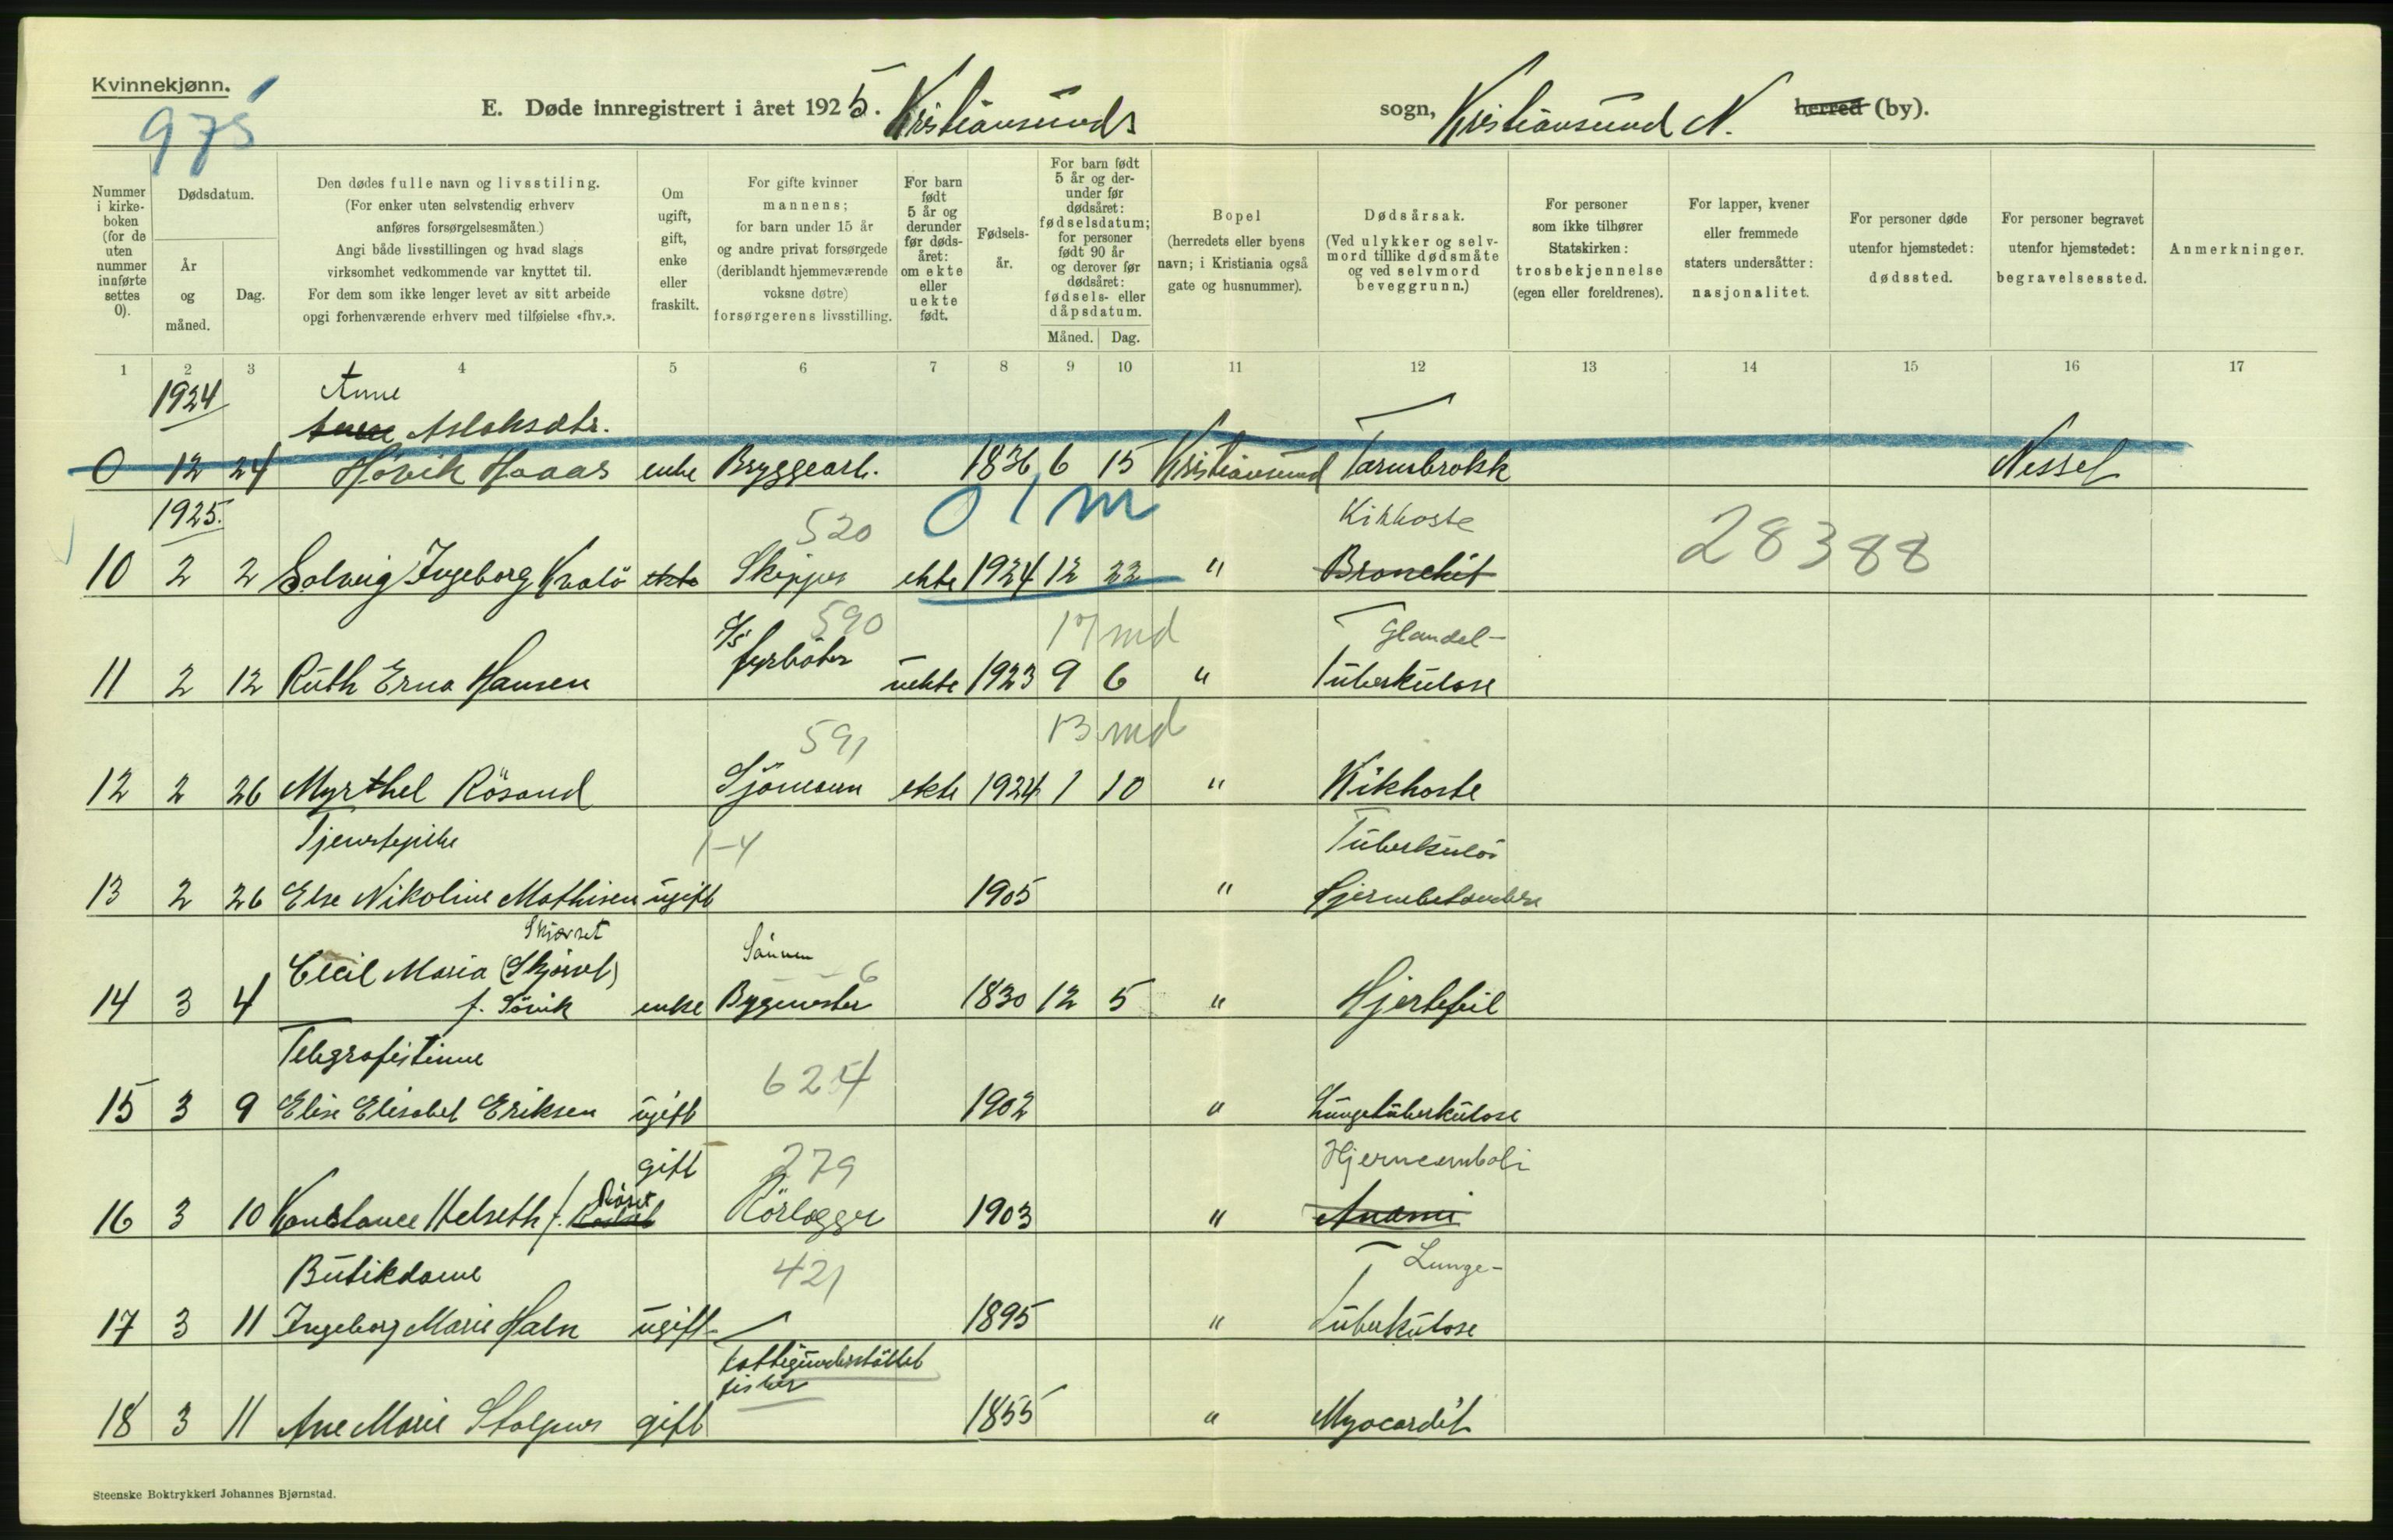 Kvinnekjønn.
975
E. Døde innregistrert i året 1925. Kristiansunds sogn, Kristiansund N. herred (by).
Nummer i kirke-boken (for de uten nummer innførte settes 0).
Dødsdatum.
År og måned.
Dag.
Den dødes fulle navn og livsstiling.
(For enker uten selvstendig erhverv
anføres forsørgelsesmåten.)
Angi både livsstillingen og hvad slags
virksomhet vedkommende var knyttet til.
For dem som ikke lenger levet av sitt arbeide
opgi forhenværende erhverv med tilføielse «fhv.».
Om ugift, gift, enke eller fraskilt.
For gifte kvinner
mannens;
for barn under 15 år
og andre privat forsørgede
(deriblandt hjemmeværende
voksne døtre)
forsørgerens livsstilling.
For barn født 5 år og derunder før døds-året: om ekte eller uekte født.
Fødsels-år.
For barn født 5 år og der-under før dødsåret: fødselsdatum; for personer født 90 år og derover før dødsåret: fødsels- eller dåpsdatum.
Måned. Dag.
Bopel
(herredets eller byens
navn; i Kristiania også
gate og husnummer).
Dødsårsak.
(Ved ulykker og selv-
mord tillike dødsmåte
og ved selvmord
beveggrunn.)
For personer
som ikke tilhører
Statskirken:
trosbekjennelse
(egen eller foreldrenes).
For lapper, kvener
eller fremmede
staters undersåtter:
nasjonalitet.
For personer døde
utenfor hjemstedet:
dødssted.
For personer begravet
utenfor hjemstedet:
begravelsessted.
Anmerkninger.
1 2 3 4 5 6 7 8 9 10 11 12 13 14 15 16 17
1924 Anne
Aslaksdtr.
0 12 24 Hövik Haaas enke Bryggearb. 1836 6 15 Kristiansund Tarmbrokk Nesset
1925. 520 0 1 m Kikhoste 28388
10 2 2 Solveig Ingeborg Kvalö ekte Skipper ekte 1924 12 22 " Bronchit
590 17 md Glandel-
11 2 12 Ruth Erna Hansen D/S fyrböter uekte 1923 9 6 " Tuberkulose
591 13 md
12 2 26 Myrthel Rösand Sjömann ekte 1924 1 10 " Kikhoste
Tjenestepike 1-4 Tuberkulös
13 2 26 Else Nikoline Mathisen ugift 1905 " Hjernebetendelse
Skjørset Sönnen
Cecil Maria (Skjörset) 6
14 3 4 f. Sörvik enke Bygmester 1830 12 5 " Hjertefeil
Telegrafistinne 6254
15 3 9 Elise Elisabet Eriksen ugift 1902 " Lungetuberkulose
gift 279 Hjerneemboli
16 3 10 Konstance Helseth f. Röset Rörlegger 1903 " Anæmi
Butikdame 421 Lunge-
17 3 11 Ingeborg Marie Halse ugift 1895 " Tuberkulose
Fattigunderstöttet
fisker
18 3 11 Ane Marie Stolpnes gift 1855 " Myocardit
Steenske Boktrykkeri Johannes Bjørnstad.